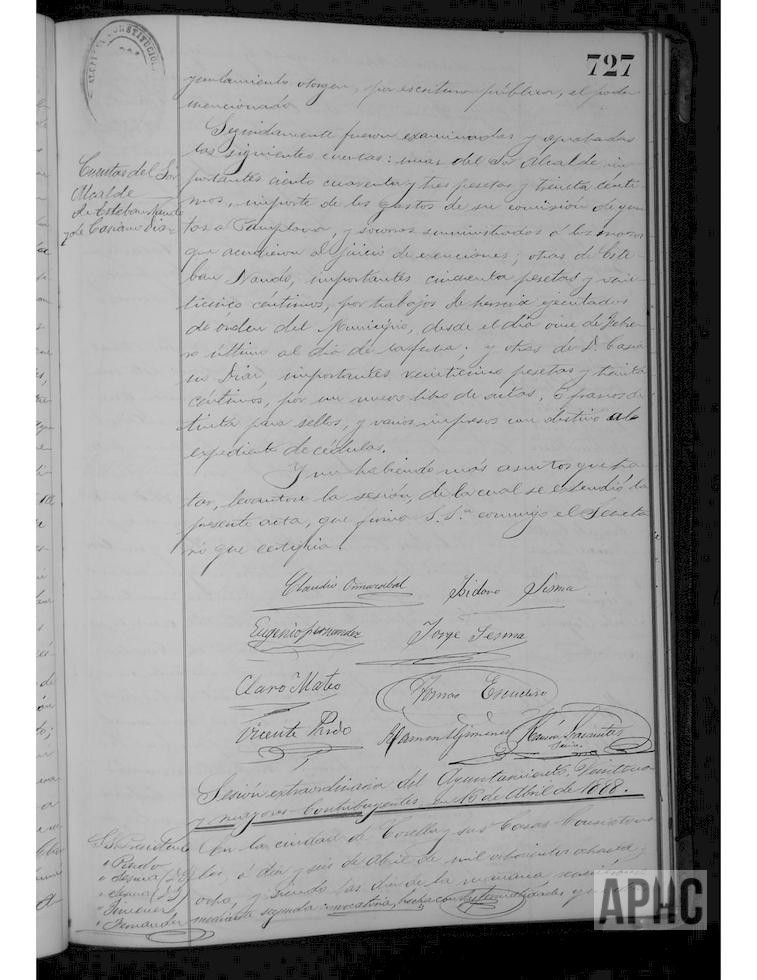 ALCALDIA CONSTITUCION
727
yuntamiento otorgen, por escritura pública, el poder
mencionado.
Seguidamente fueron examinadas y aprobadas
las siguientes cuentas: unas del Sor Alcalde im-
portantes ciento cuarenta y tres pesetas y treinta cénti-
mos, importe de los gastos de su comisión de quin-
tas á Pamplona, y socorros suministrados á los mozos
que acudieron al juicio de exenciones; otras de Este-
ban Nando, importantes cincuenta pesetas y vein-
ticinco céntimos, por trabajos de herrería ejecutados
de órden del Municipio, desde el día once de Febre-
ro último al día de la fecha; y otras de D. Casia-
no Diaz, importantes veinticinco pesetas y treinta
céntimos, por un nuevo libro de actas, 6 frascos de
tinta para sellos, y varios impresos con destino al
expediente de cédulas.
Y no habiendo más asuntos que tra-
tar, levantose la sesión, de la cual se extendió la
presente acta, que firma S.S.ª conmigo el Secreta-
rio que certifica.
Cuentas del Sor
Alcalde
de Esteban Nando
y de Casiano Diaz
Claudio Isidoro Sesma
Eugenio Fernandez Jorge Sesma
Claro Mateo Tomas Escudero
Vicente Pardo Ramon Gimenez Ramón
Srio.
Sesión extraordinaria del Ayuntamiento, Veintena
y mayores Contribuyentes en 16 de Abril de 1888.
S.S. Presidente
" Pardo
" Sesma (D I)
" Sesma (D J)
" Jimenez
" Fernandez
En la ciudad de Corella y sus Casas Consistoria-
les, á diez y seis de Abril de mil ochocientos ochenta y
ocho, y siendo las diez de la mañana
mediante segunda convocatoria, hecha con
APHC